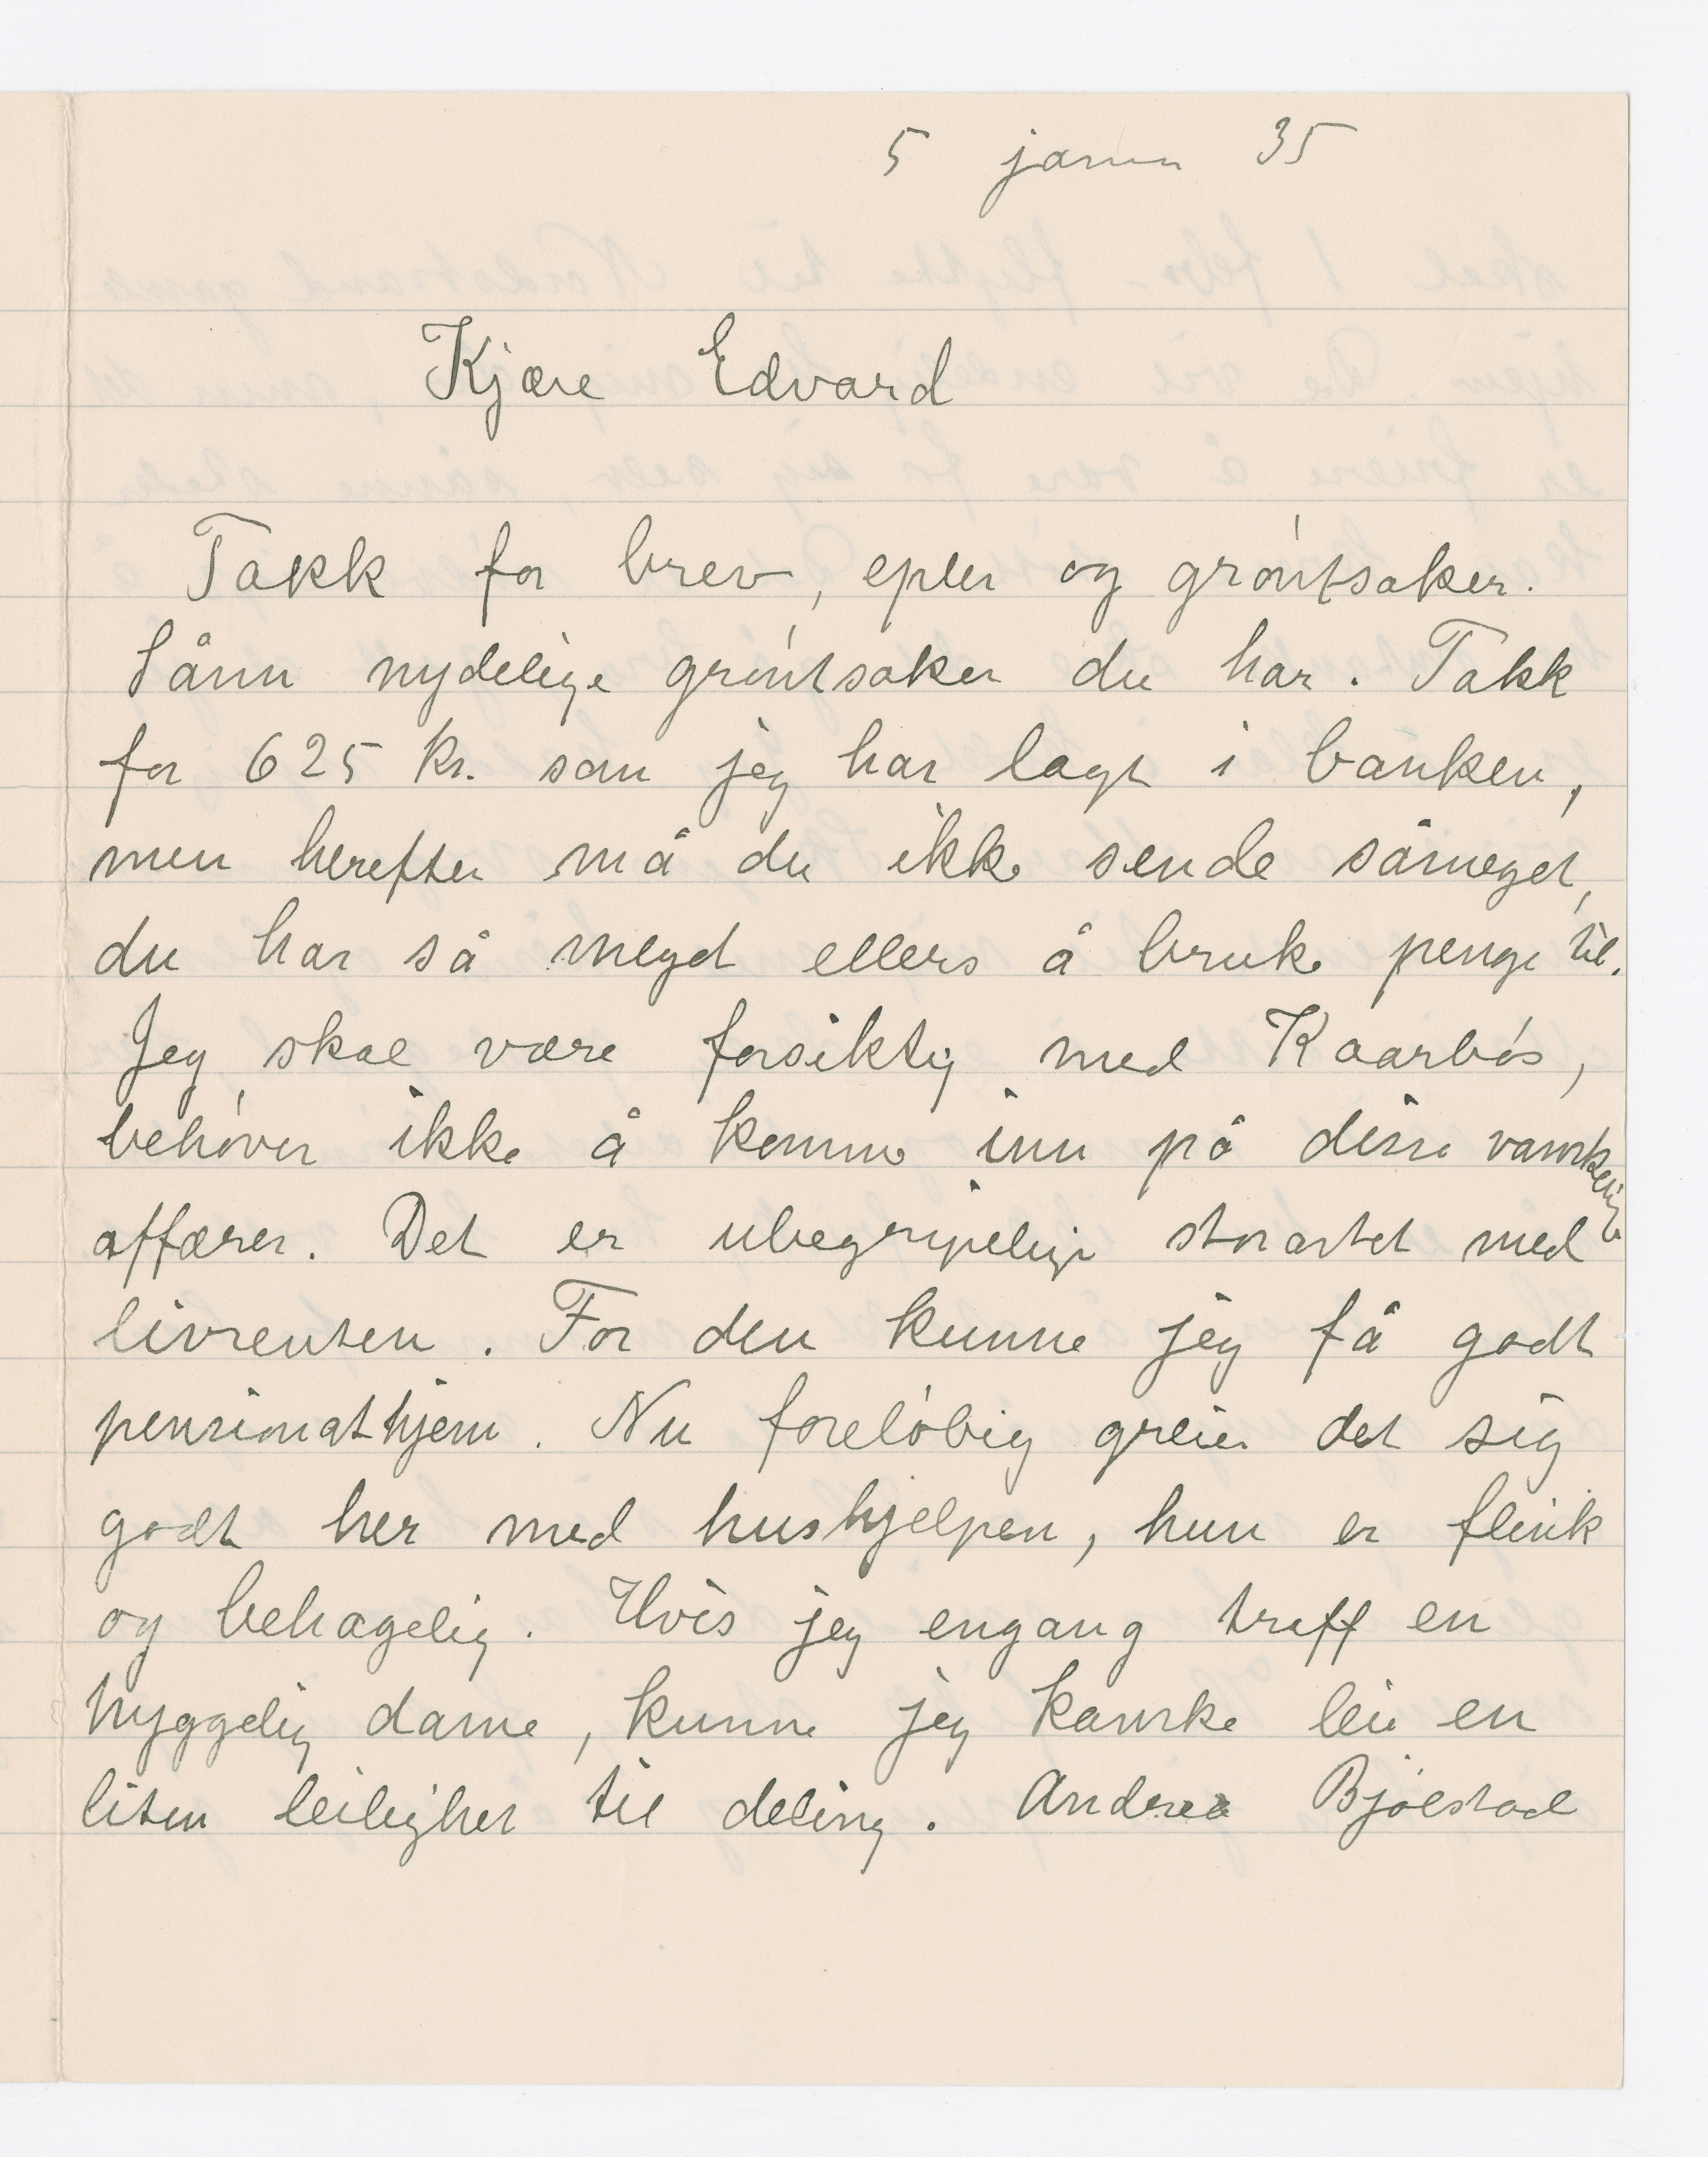 5 januar 35
Kjære Edvard
Takk for brev, epler og gróntsaker.
Sånn nydelige gróntsaker du har. Takk
for 625 kr. som jeg har lagt i banken,
men herefter må du ikke sende såmeget,
du har så meget ellers å bruke penge til.
Jeg skal være forsiktig med Kaarbós,
behóver ikke å komme inn på disse vanskelige
affærer. Det er ubegripelige storartet med
livrenten. For den kunne jeg få godt
pensionathjem. Nu forelóbig greier det sig
godt her med hushjelpen, hun er flink
og behagelig. Hvis jeg engang treff en
hyggelig dame, kunne jeg kanske leie en
liten leilighet til deling. Andrea Bjólstad